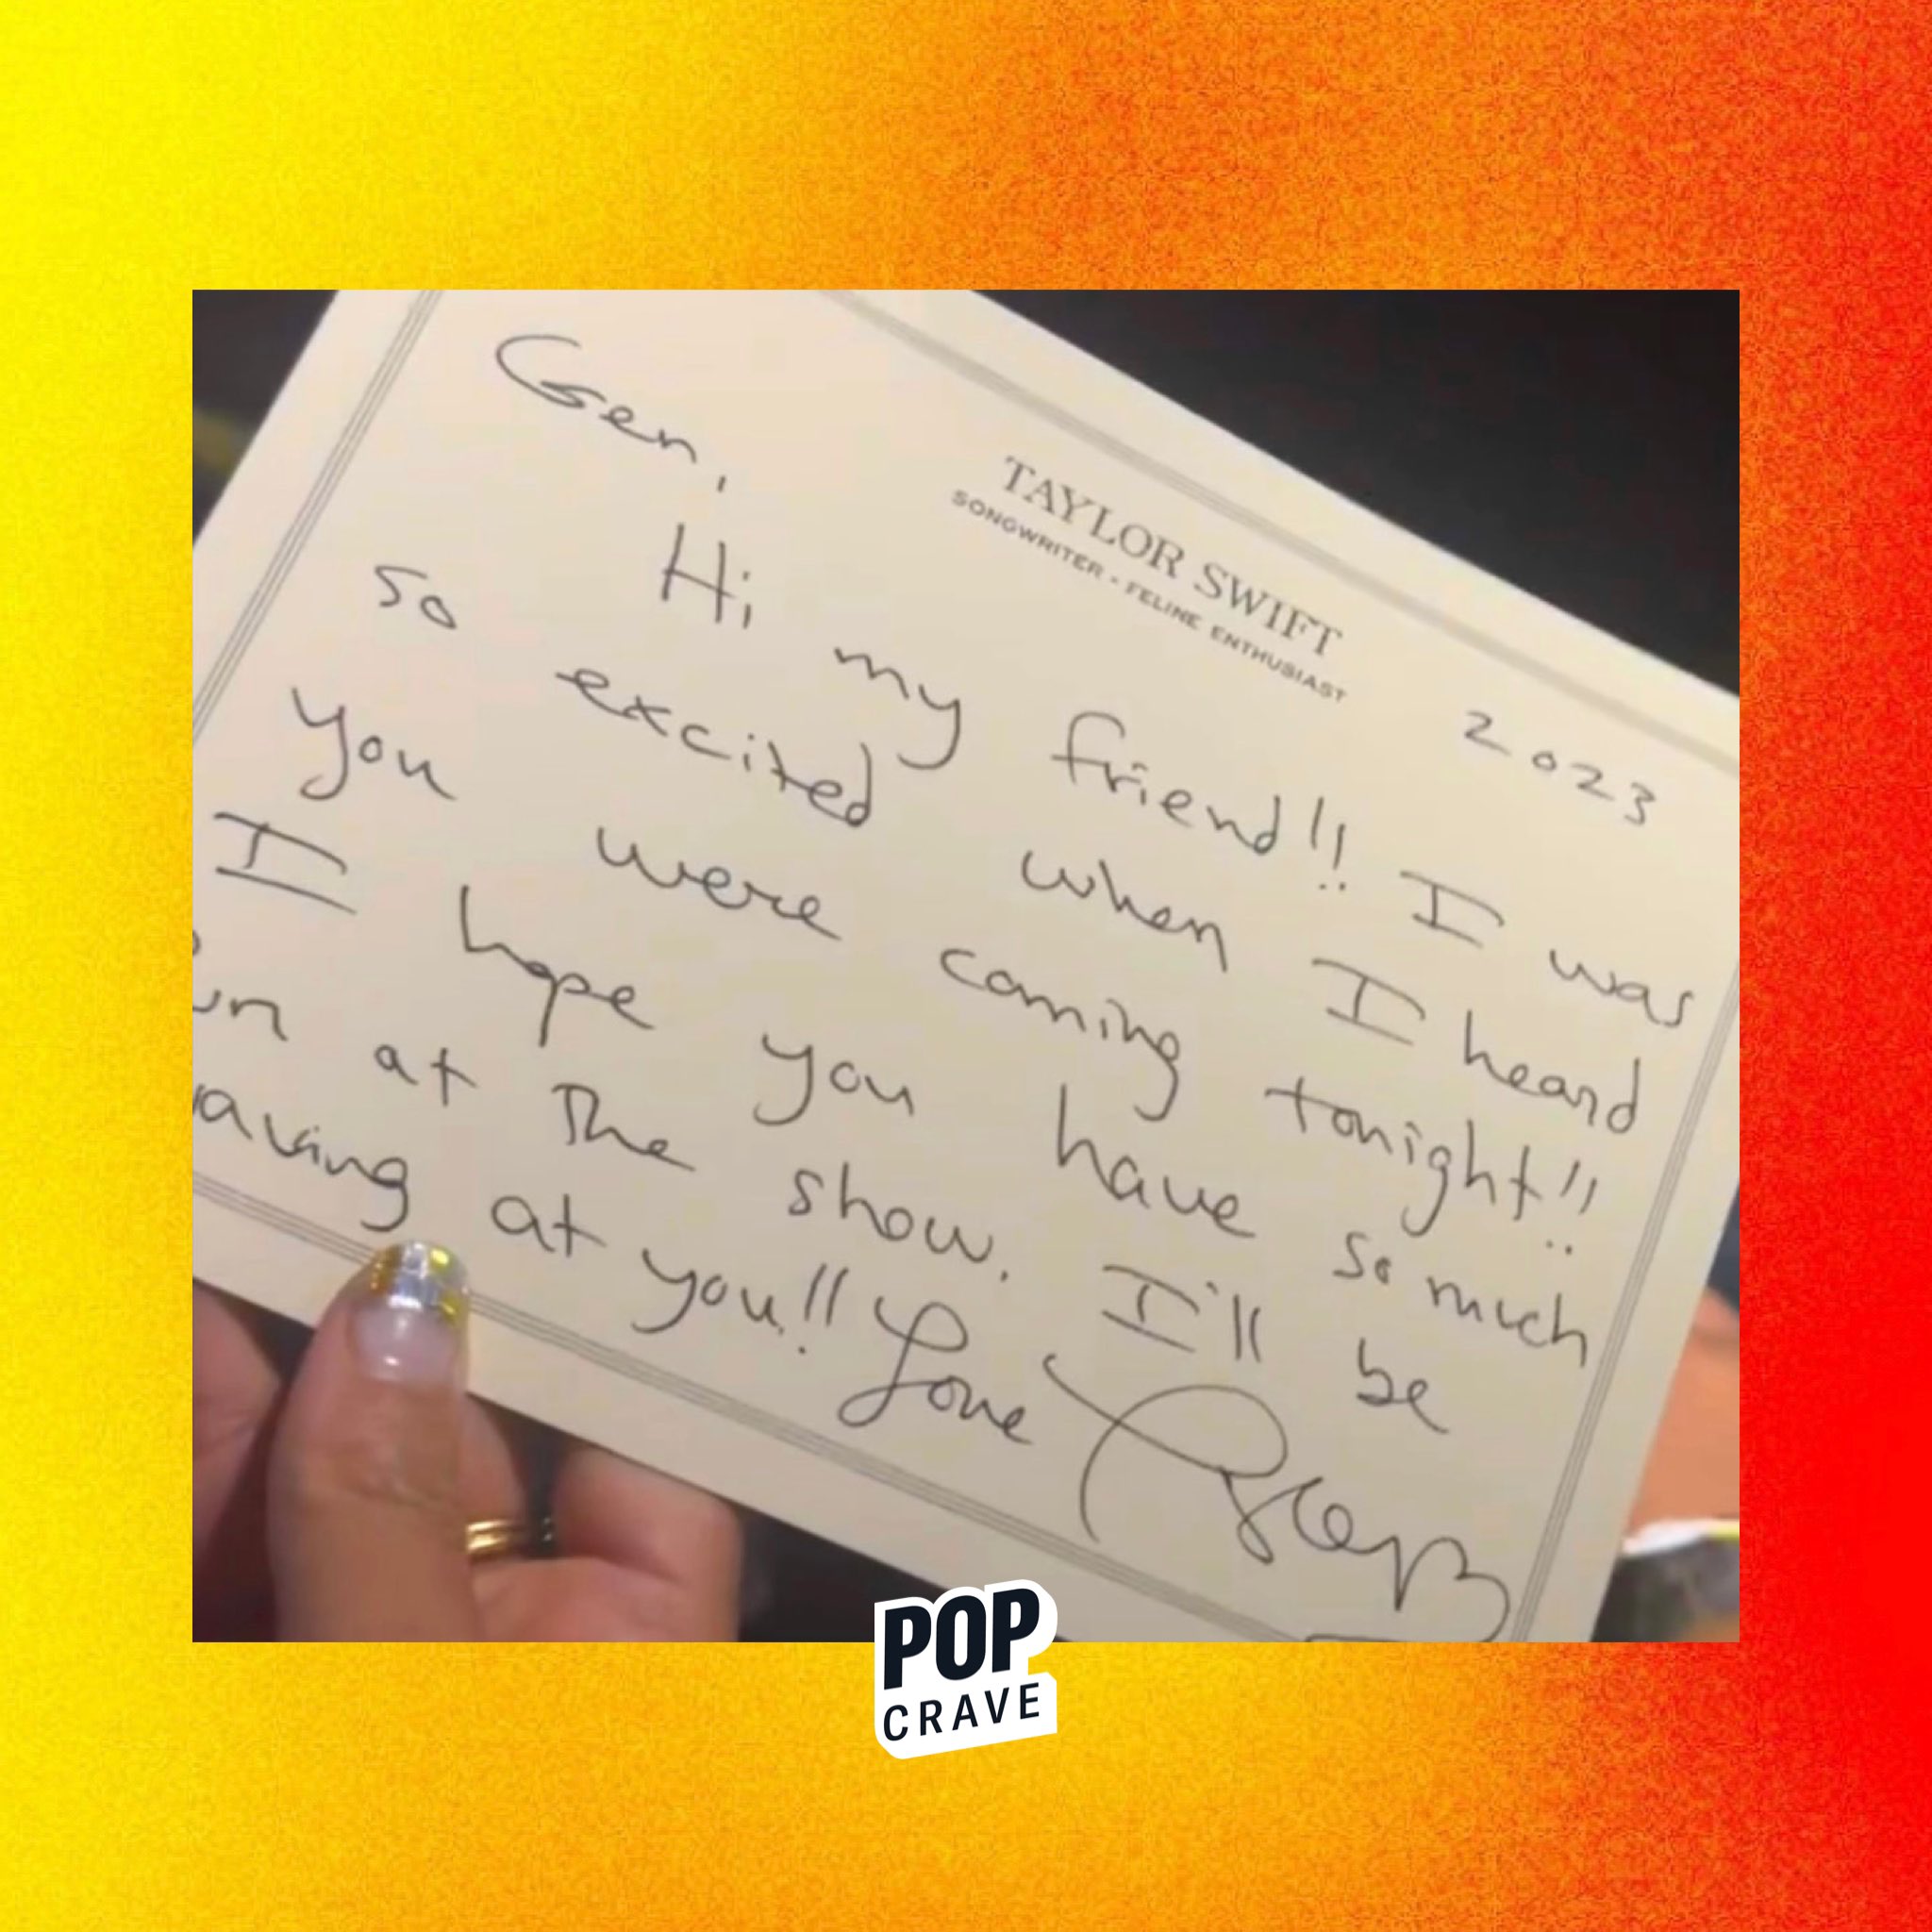 TAYLOR SWIFT
SONGWRITER - FELINE ENTHUSIAST
2023
Gen,
Hi my friend!! I was
so excited when I heard
you were coming tonight!!
I hope you have so much
un at The show. I'll be
aving at you!! Love
POP
CRAVE